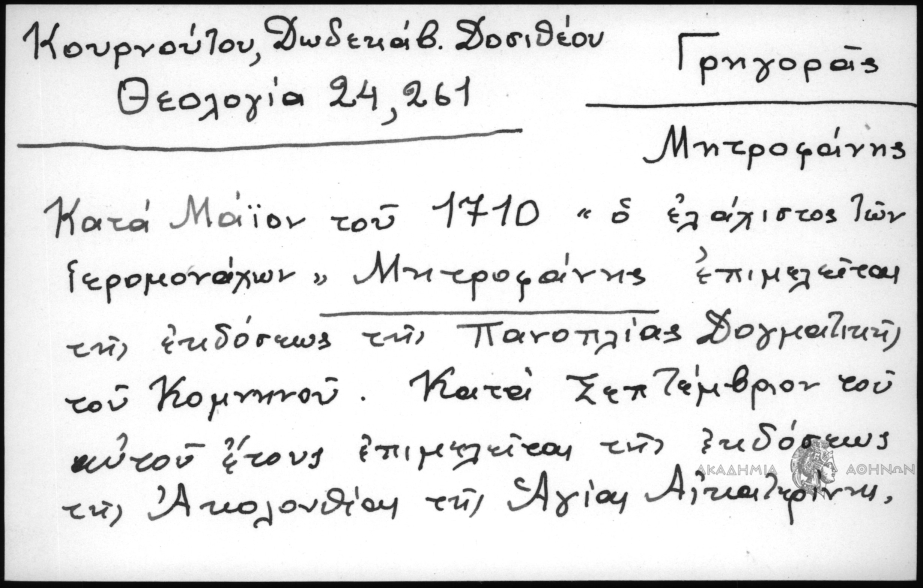 Κουρνούτου, Δωδεκάβ. Δοσιθέου
Θεολογία 24, 261
Γρηγορᾶς
Μητροφάνης
Κατά Μάϊον τοῦ 1710 "ὁ ἐλάχιστος τῶν
ἱερομονάχων" Μητροφάνης ἐπιμελεῖται
τῆς ἐκδόσεως τῆς Πανοπλίας Δογματικῆς
τοῦ Κομνηνοῦ. Κατά Σεπτέμβριον τοῦ
αὐτοῦ ἔτους ἐπιμελεῖται τῆς ἐκδόσεως
τῆς Ἀκολουθίας τῆς Ἁγίας Αἰκατερίνης.
ΑΚΑΔΗΜΙΑ ΑΘΗΝΩΝ